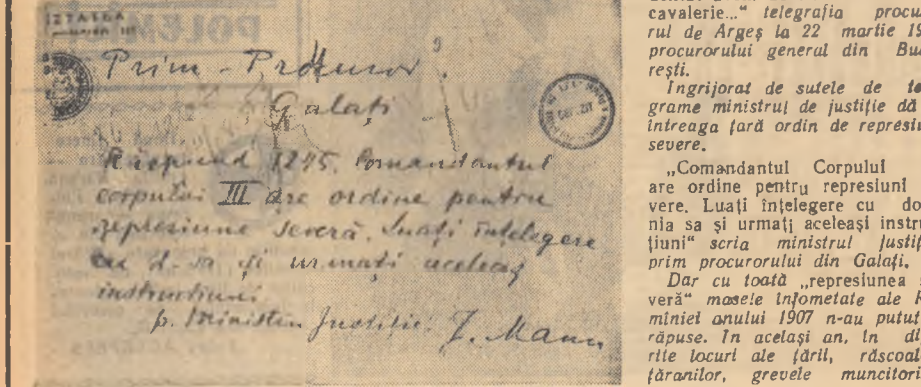 Prim - Procuror
Galați
Răspund 1275. Comandantul
corpului III are ordine pentru
represiune severă. Luați înțelegere
cu d-sa și urmați aceleaș
instrucțiuni
p. Ministru Justiției
cavalerie..." telegrafia procu
rul de Argeș la 22 martie 19
procurorului general din Bu
rești.
Ingrijorat de sutele de te
grame ministrul de justiție dă
întreaga țară ordin de represiu
severe.
„Comandantul Corpului
are ordine pentru represiuni
vere. Luați înțelegere cu do
nia sa și urmați aceleași instru
țiuni" scria ministrul justiț
prim procurorului din Galați.
Dar cu toată „represiunea
veră" masele înfometate ale R
mîniei anului 1907 n-au putut
răpuse. In același an, in di
rite locuri ale țării, răscoal
țăranilor, grevele muncitori